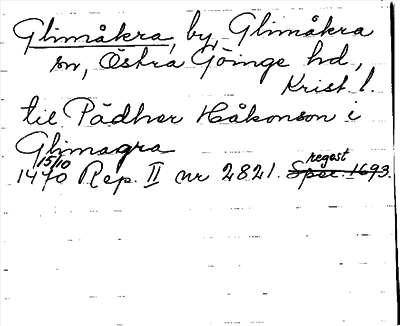 Glimåkra, by, Glimåkra
sn, Östra Göinge hd.,
Krist. l.
til Pädher Håkonson i
Glimagra
15/10
1470 Rep. II nr 2821. regest 1693.